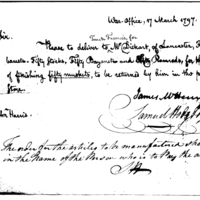 War-Office, 17 March 1797.
Sir.
Tench Francis for
Please to deliver to Mr Dickert, of Lancaster, Fifty
barrels, Fifty Stocks, Fifty Bayonets and Fifty Ramrods, for the
of finishing fifty muskets, to be returned by him in the
Store.
James McHenry
Samuel Hodgdon
John Harris
The order for the articles to be manufactured should
in the Name of the Person who is to Pay the
SH